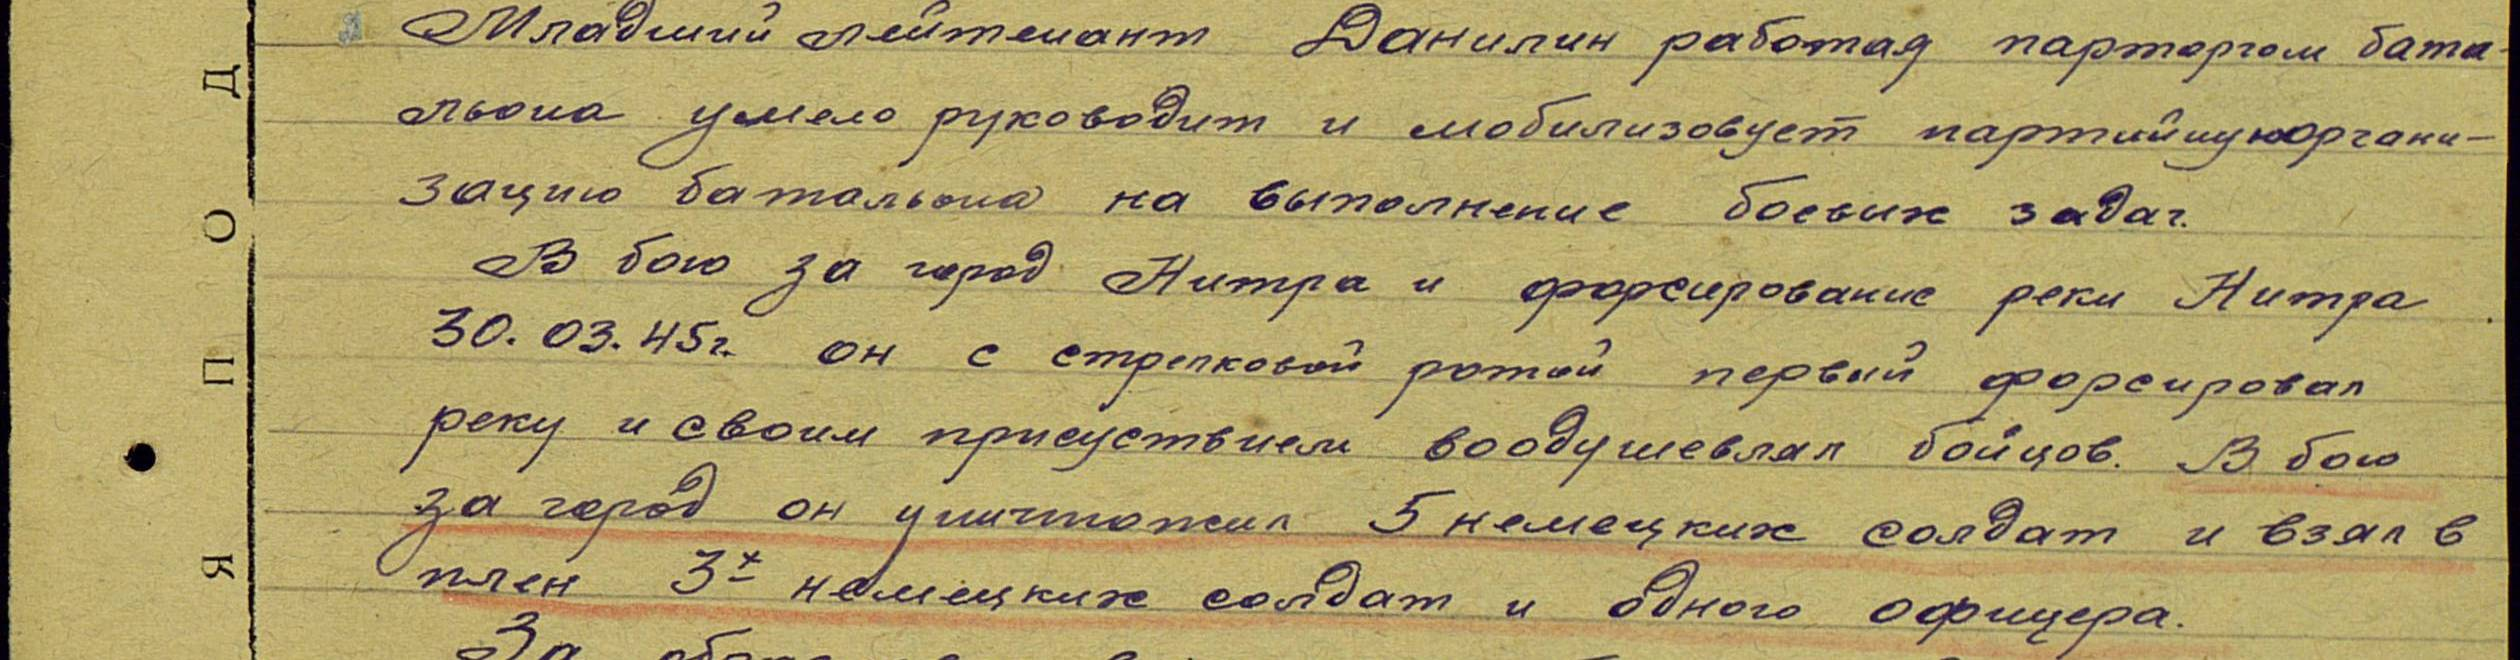 Младший лейтенант Данилин работая парторгом бата-
льона умело руководит и мобилизовует партийную органи-
зацию батальона на выполнение боевых задач.
В бою за город Нитра и форсирование реки Нитра
30.03.45г. он с стрелковой ротой первый форсировал
реку и своим присуствием воодушевлял бойцов. В бою
за город он уничтожил 5 немецких солдат и взял в
плен 3х немецких солдат и одного офицера.
За
Д
О
П
Я